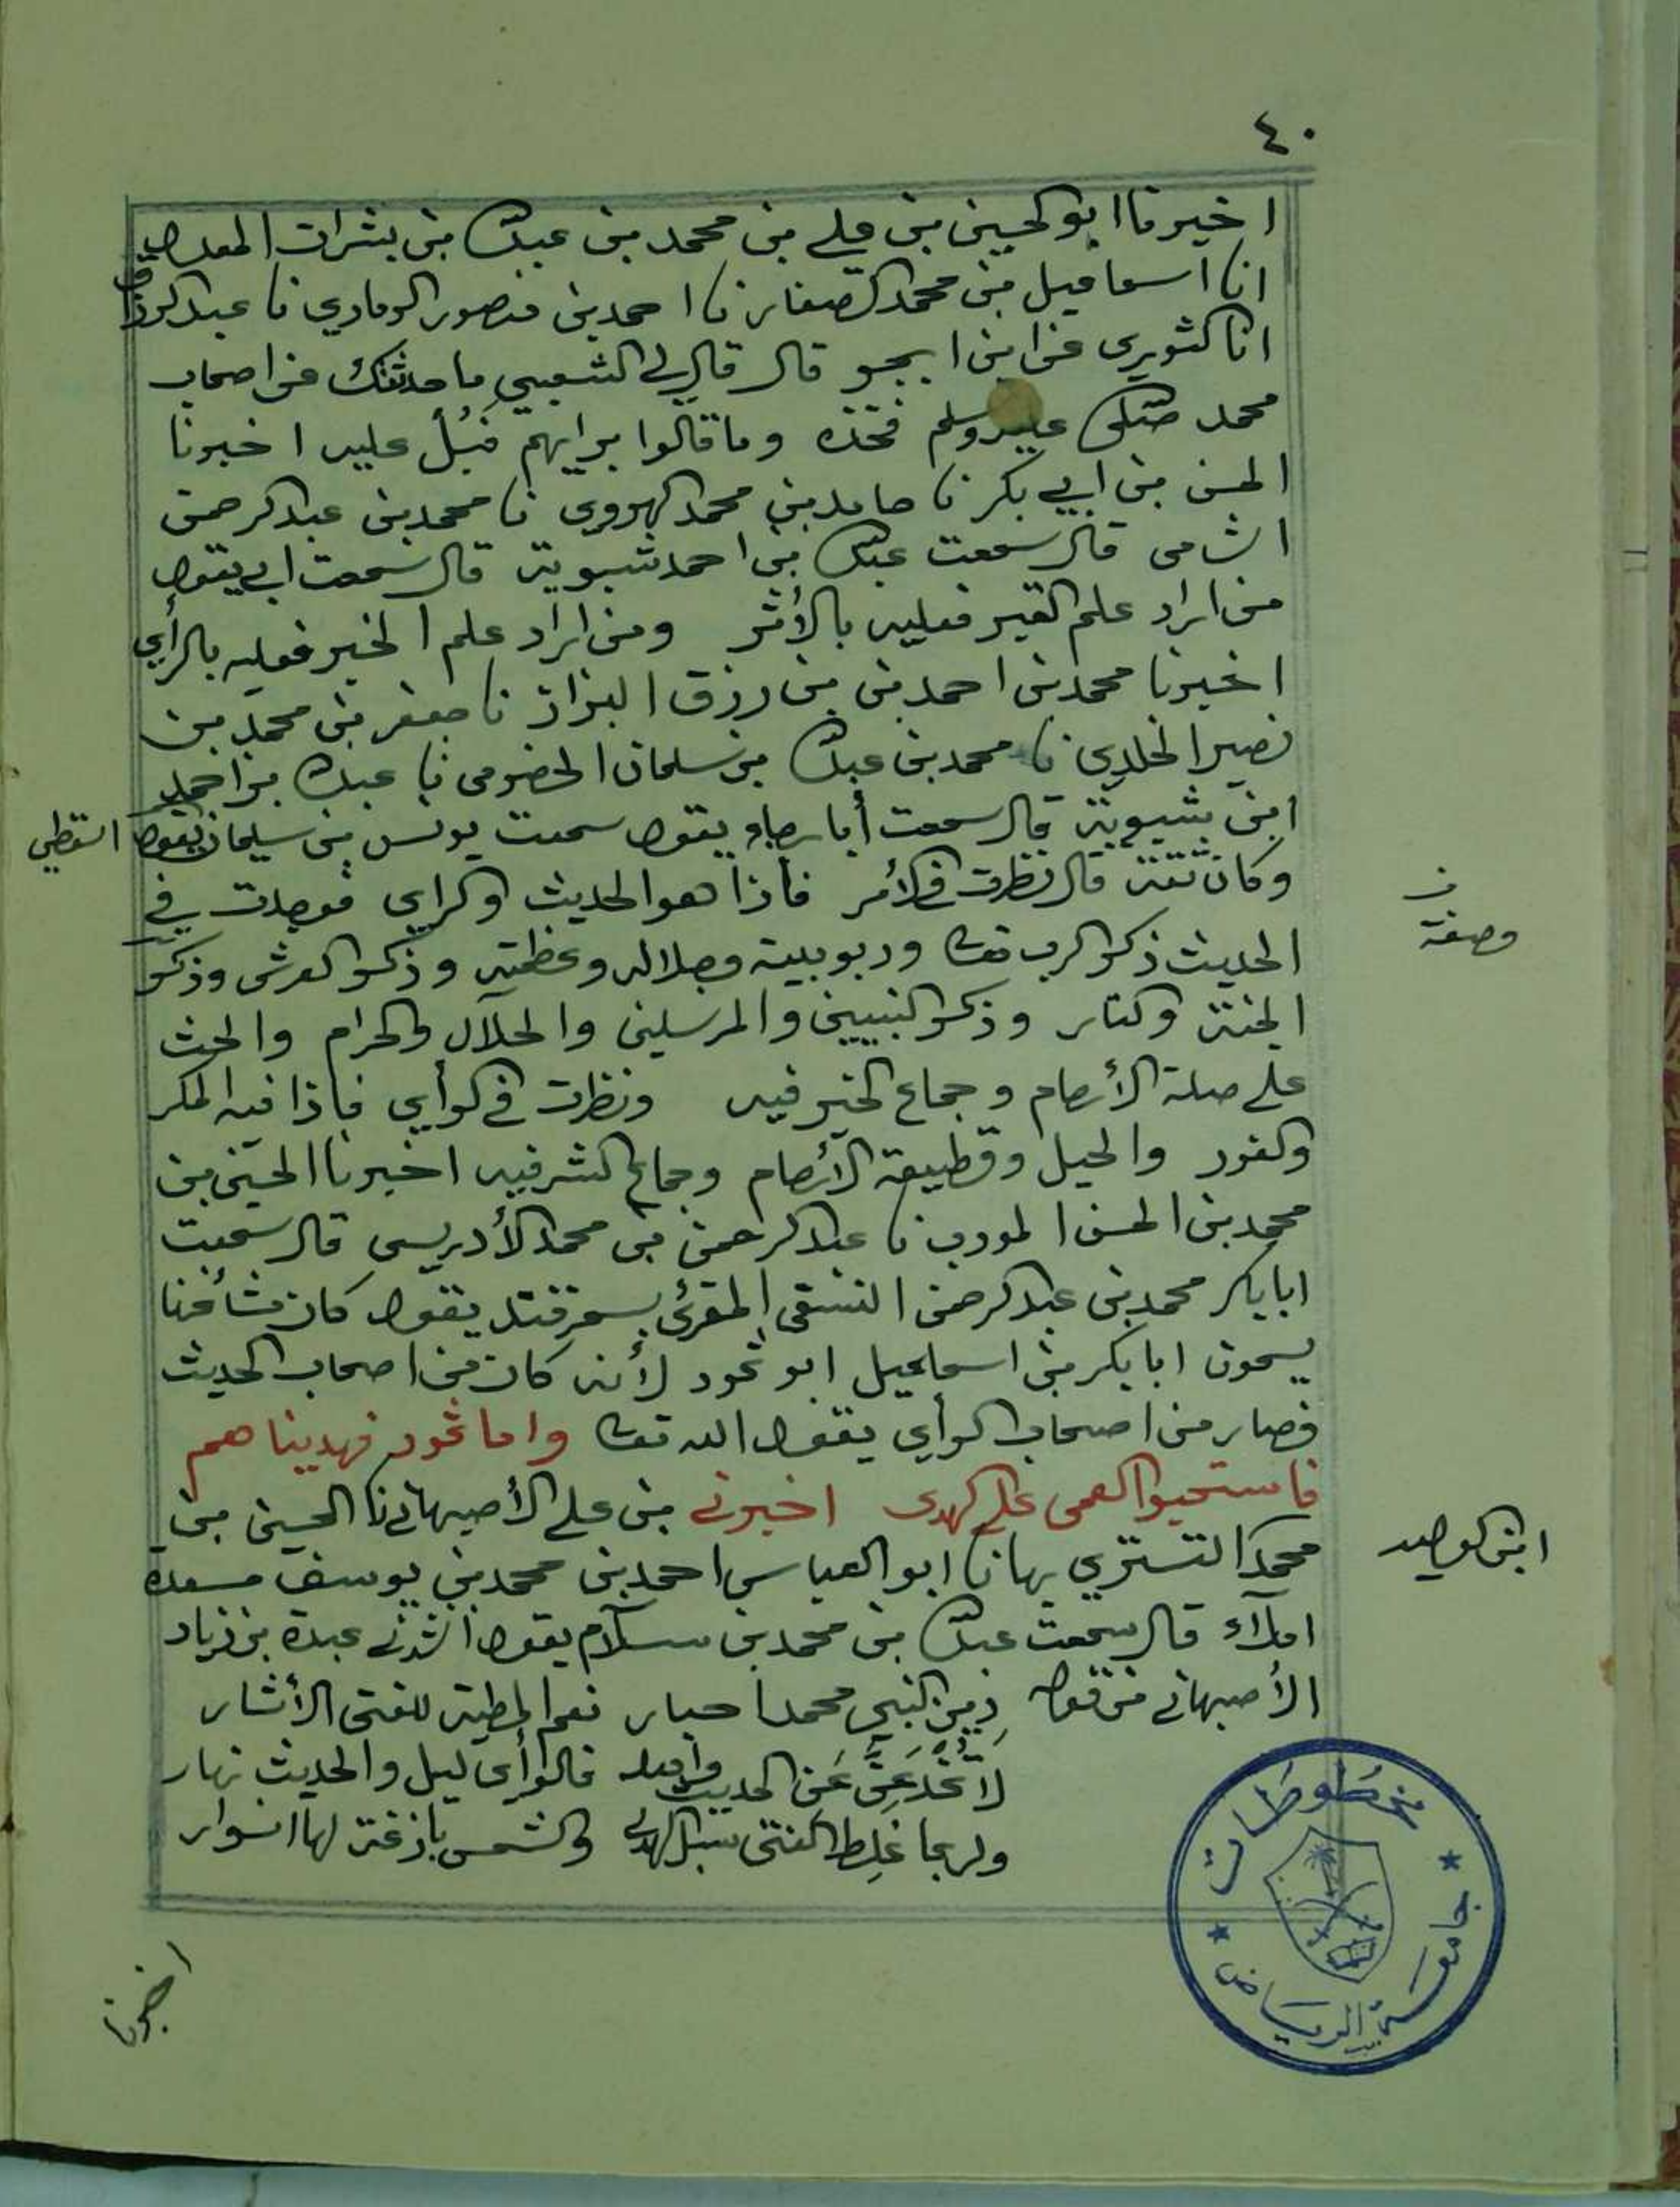 ٤٠
اخبرنا ابو الحسين بن علي بن محمد بن عبدالله بن بشران المعدل
انا اسماعيل بن محمد الصفار نا احمد بن منصور الرمادي نا عبدالرزاق
انا الثوري عن ابن ابجر قال قال لي الشعبي ما حدثوك عن اصحاب
محمد صلى الله عليه وسلم فخذه وما قالوا برايهم فبل عليه اخبرنا
الحسن بن ابي بكر نا حامد بن محمد الهروي نا محمد بن عبدالرحمن
الشامي قال سمعت عبدالله بن احمد شبوية قال سمعت ابي يقول
من اراد علم القبر فعليه بالأثر ومن اراد علم الخبر فعليه بالرأي
اخبرنا محمد بن احمد بن رزق البزاز نا جعفر بن محمد بن
نصير الخلدي نا محمد بن عبدالله بن سلمان الحضرمي نا عبدالله بن احمد
ابن شبوية قال سمعت أبا رجاء يقول سمعت يونس بن سليمان يقول السقطي
وكان ثقة قال نظرت في الأمر فاذا هو الحديث والراي فوجدت في
الحديث ذكر الرب تعالى وربوبيته وجلاله وعظمته وذكر العرش وذكر
وصفة
الجنة والنار وذكر النبيين والمرسلين والحلال والحرام والحث
على صلة الأرحام وجماع الخير فيه ونظرت في الرأي فاذا فيه المكر
والغدر والحيل وقطيعة الأرحام وجماع الشر فيه اخبرنا الحسن بن
محمد بن الحسن المودب نا عبدالرحمن بن محمد الأدريسي قال سمعت
ابا بكر محمد بن عبدالرحمن النسفي المقرئ بسمرقند يقول كان مشائخنا
يسمون ابا بكر بن اسماعيل ابو ثمود لأنه كان من اصحاب الحديث
فصار من اصحاب الرأي يقول الله تعالى واما ثمود فهديناهم
فاستحبوا العمى على الهدى اخبرني بن علي الأصبهاني نا الحسين بن
محمد التستري بها نا ابو العباس احمد بن محمد بن يوسف مسعدة
ابن الوليد
املآء قال سمعت عبدالله بن محمد بن سلام يقول انشدني عبدة بن زياد
الأصبهاني من قوله دين النبي محمد اخبار نعم المطية للفتى الأثار
لا تخدعن عن الحديث واهله فالرأي ليل والحديث نهار
ولربما غلط الفتى سبل الهدى والشمس بازغة لها انوار
مخطوطات
جامعة الرياض
اخبرنا